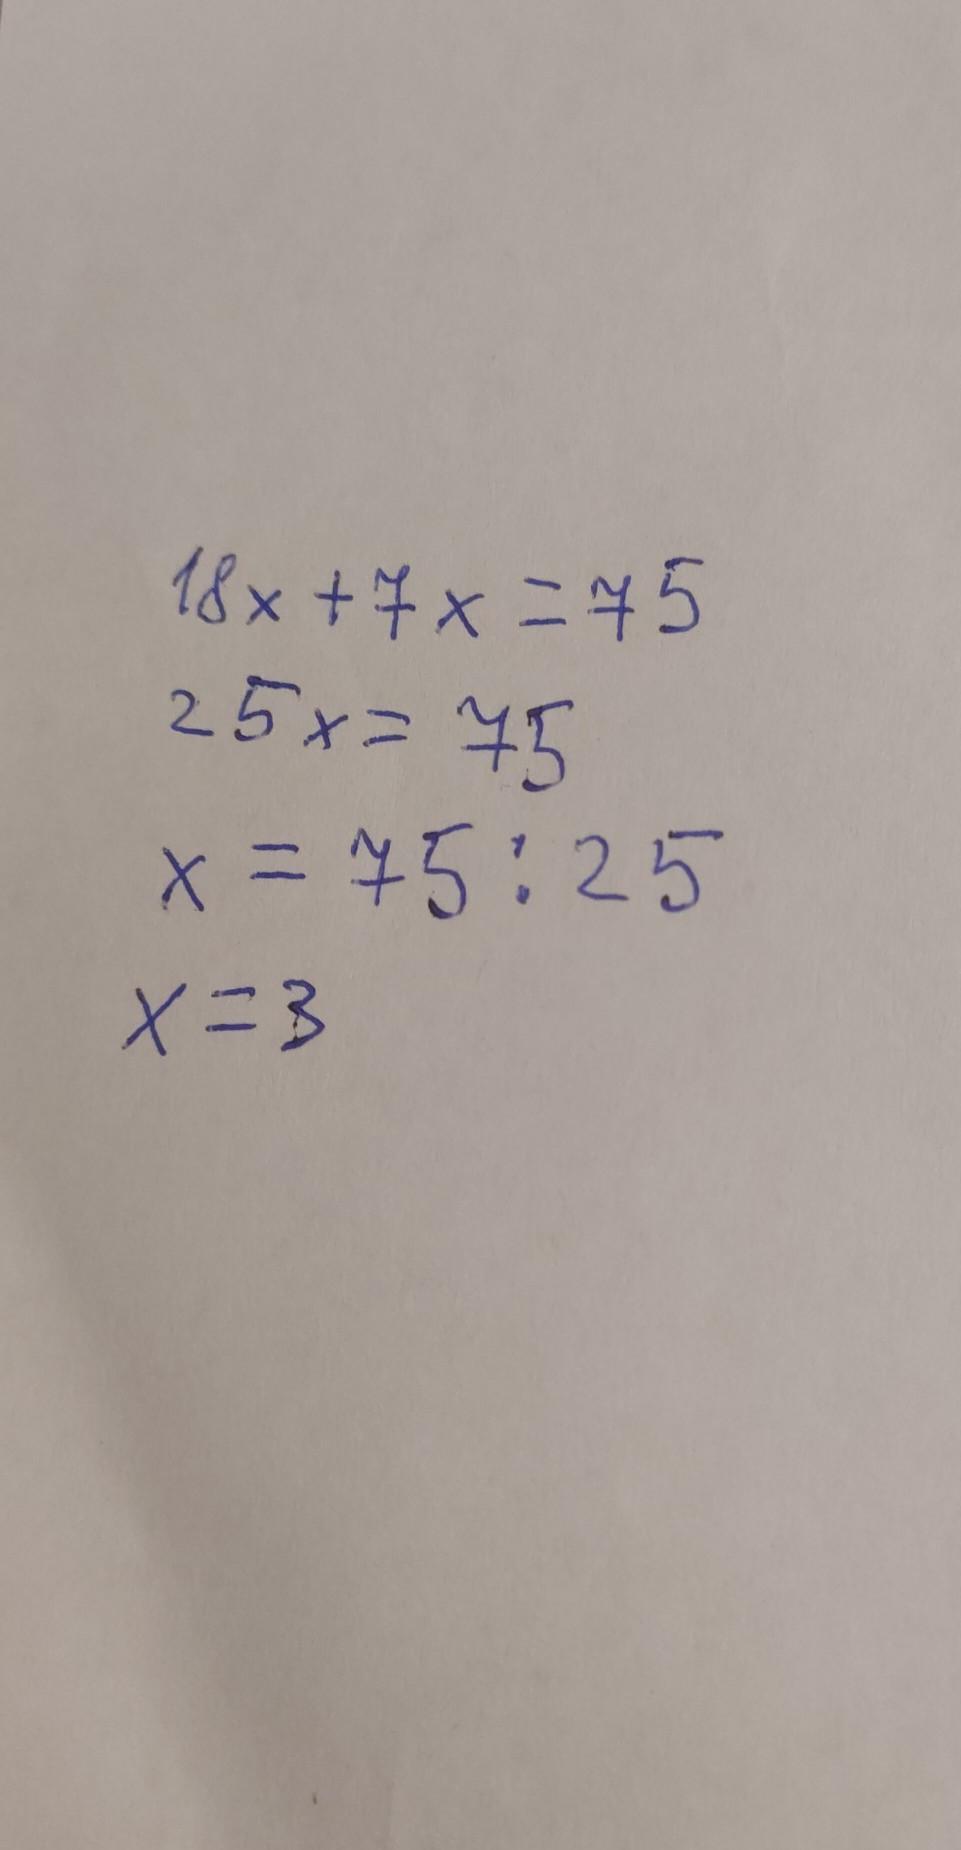 18x+7x=75
25x=75
x=75:25
x=3